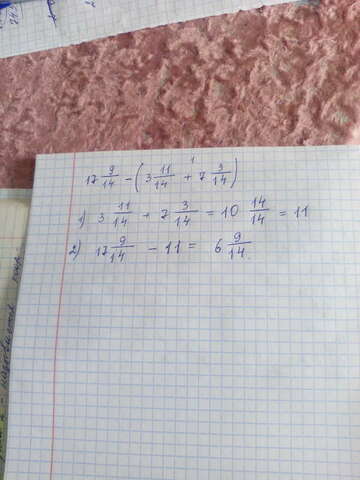 1
17 9/14 - (3 11/14 + 7 3/14)
1) 3 11/14 + 7 3/14 = 10 14/14 = 11
2) 17 9/14 - 11 = 6 9/14.